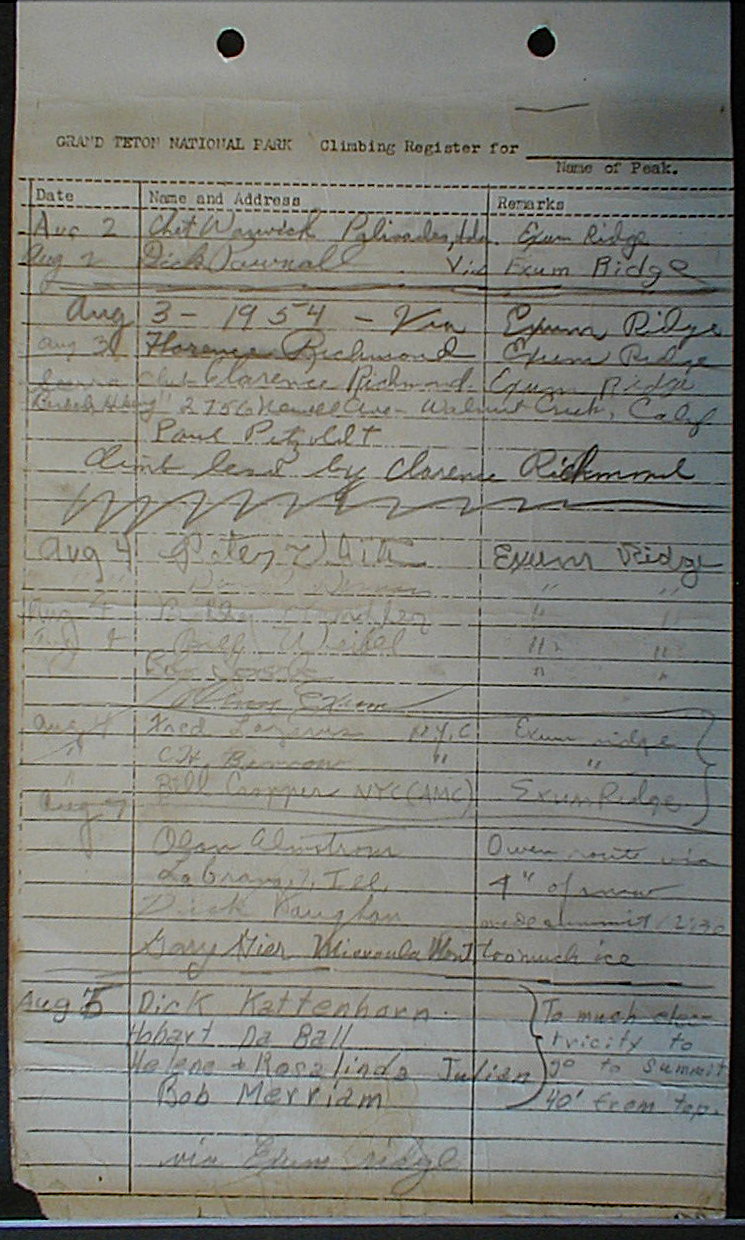 GRAND TETON NATIONAL PARK Climbing Register for
Name of Peak.
Date Name and Address Remarks
Aug 2 Chet Warwick Palisades, Ida. Exum Ridge
Aug 2 Dick Pownall Via Exum Ridge
Aug 3 - 1954 - Via Exum Ridge
Aug 3 Florence Richmond Exum Ridge
Sierra Club Clarence Richmond - Exum Ridge
2756 Newell Ave - Walnut Creek, Calif
Paul Petzoldt
Climb lead by Clarence Richmond
Aug 4 Exum Ridge
" "
Aug 4 " "
Bill " "
Bob " "
Glenn Exum
Aug 4 Fred Lazarus N.Y.C Exum ridge
" C.H. " "
" Bill Cropper NYC (AMC) Exum Ridge
Aug
Olan Owen route via
La Grange, Ill. 4" of snow
Dick Vaughan made summit 12:30
Gary Nier Missoula Mont too much ice
Aug 5 Dick Kattenhorn To much elec-
Hobart Da Ball tricity to
Helene + Rosalinda Julian go to summit
Bob Merriam 40' from top.
via Exum ridge